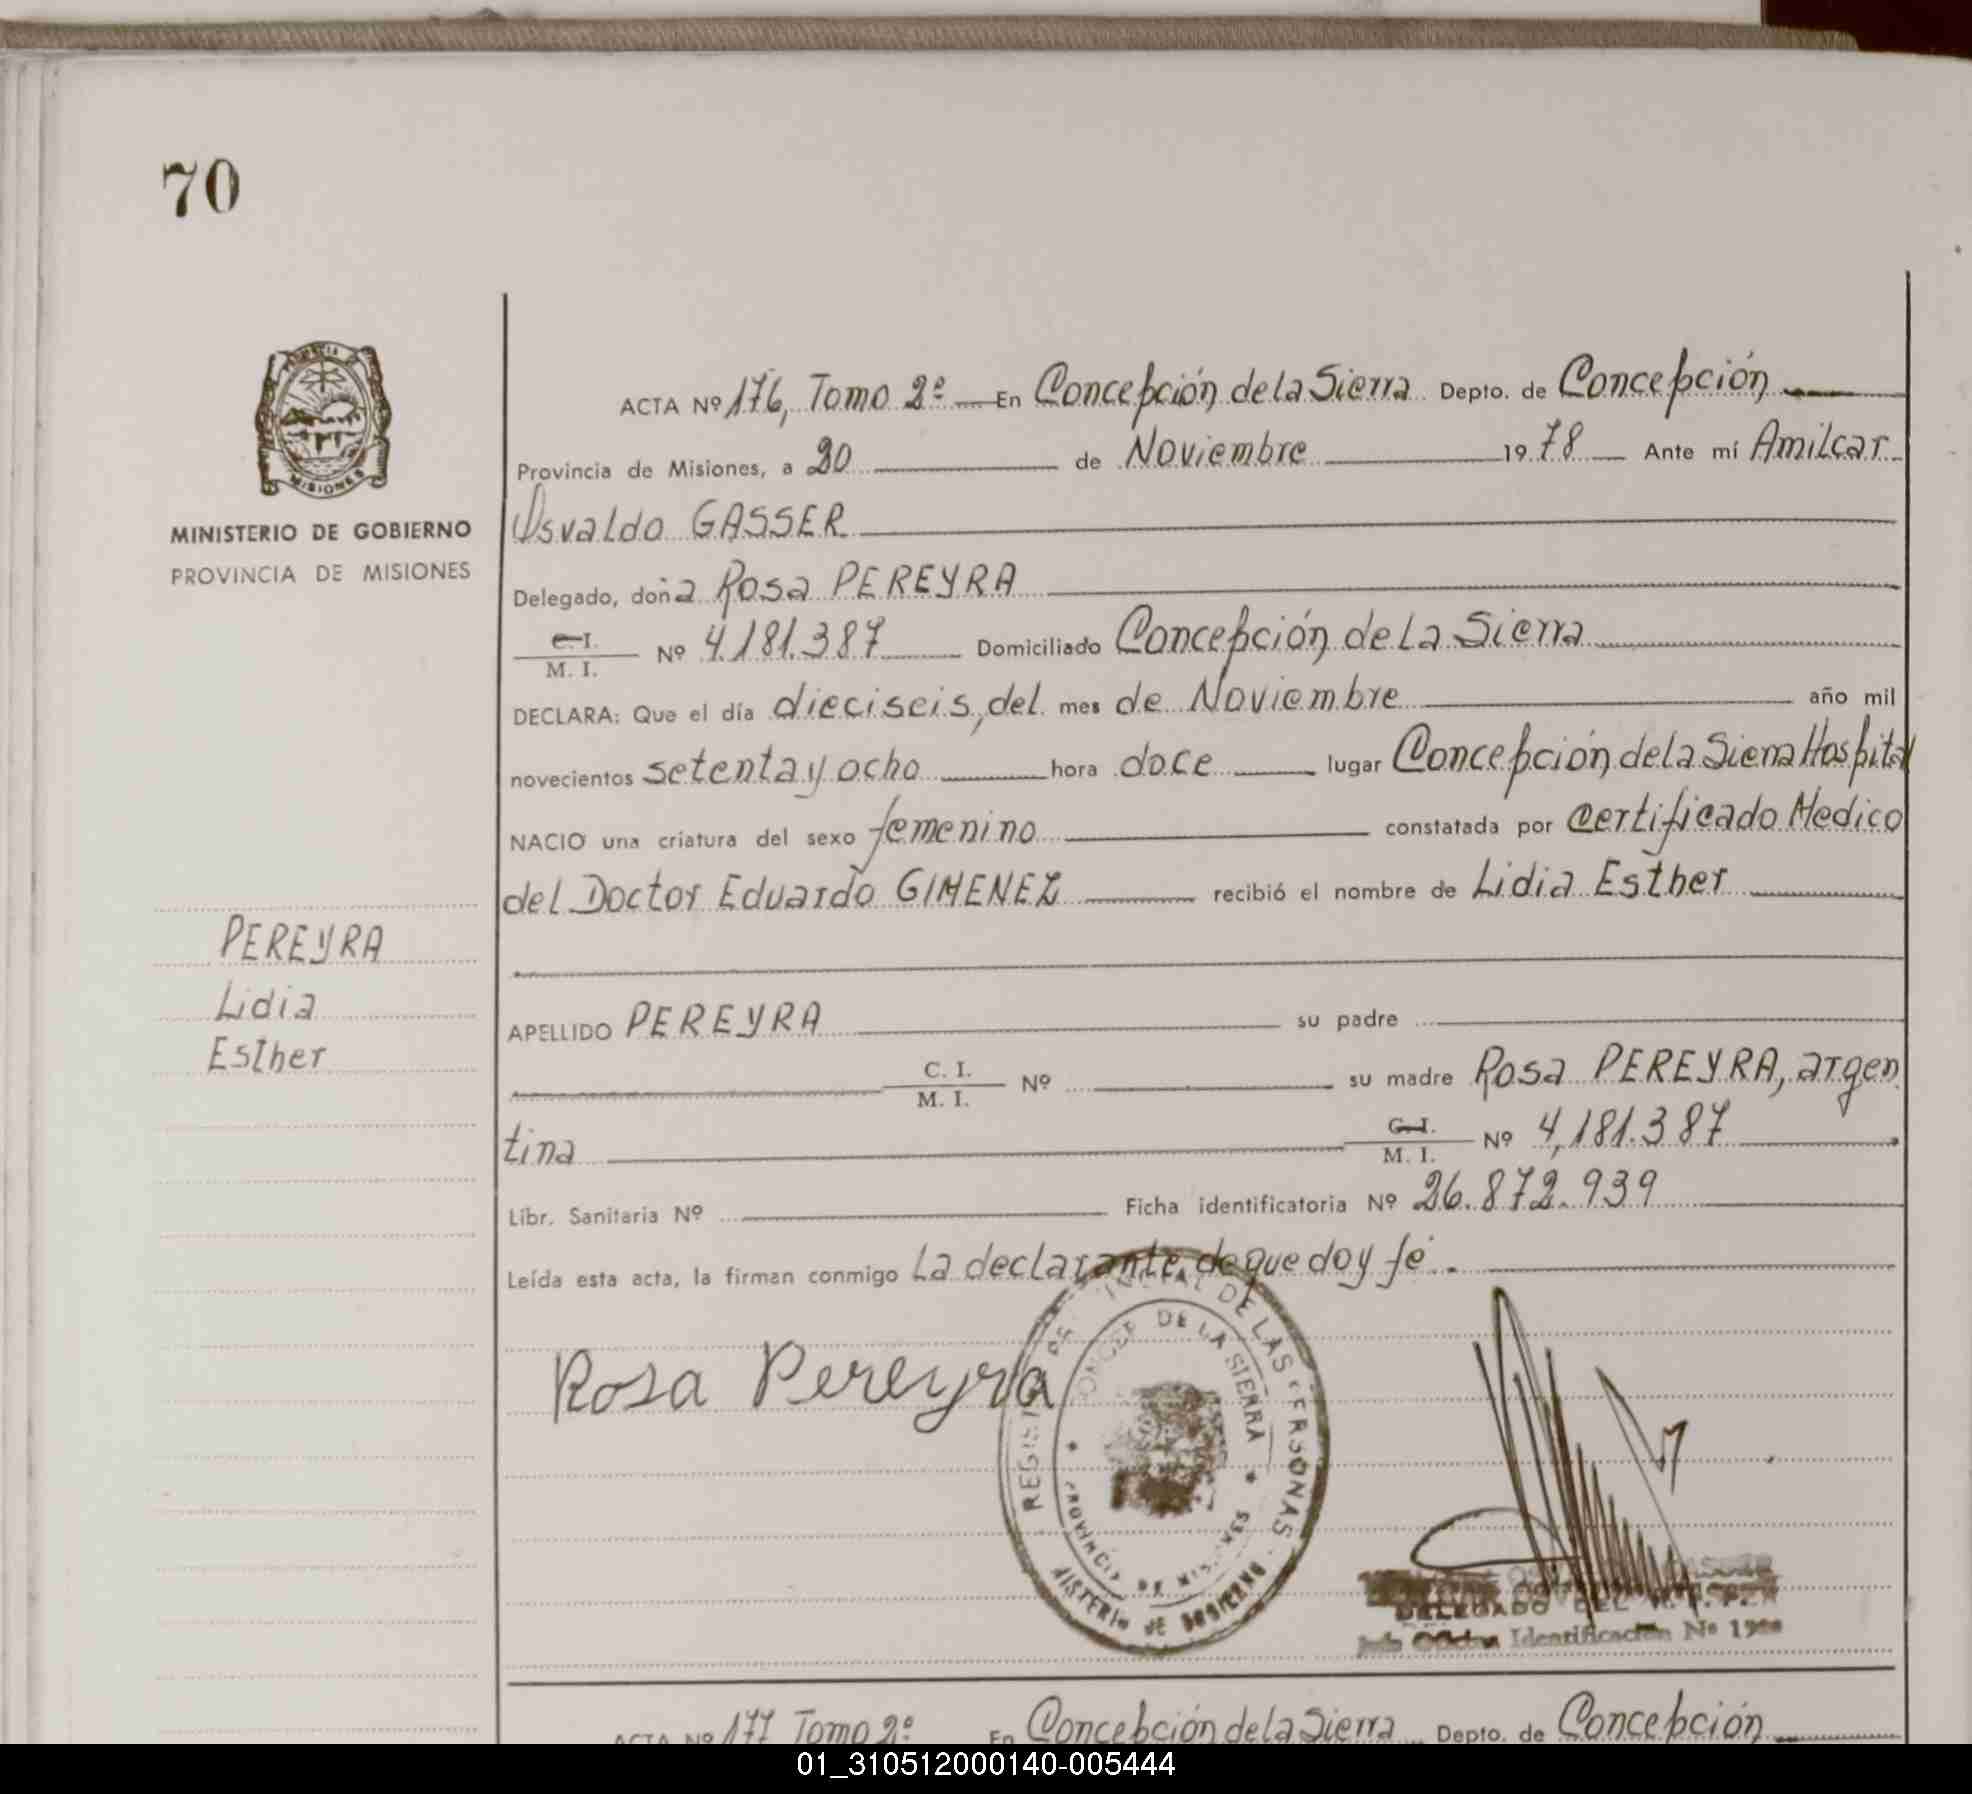 70
MISIONES
MINISTERIO DE GOBIERNO
PROVINCIA DE MISIONES
PEREYRA
Lidia
Esther
ACTA Nº 176, Tomo 2º En Concepción de la Sierra Depto. de Concepción
Provincia de Misiones, a 20 de Noviembre 1978 Ante mí Amilcar
Osvaldo GASSER
Delegado, doña Rosa PEREYRA
C.I. M. I. Nº 4.181.387 Domiciliado Concepción de La Sierra
DECLARA: Que el día dieciseis, del mes de Noviembre año mil
novecientos setenta y ocho hora doce lugar Concepción de la Sierra Hospital
NACIO una criatura del sexo femenino constatada por Certificado Medico
del Doctor Eduardo GIMENEZ recibió el nombre de Lidia Esther
APELLIDO PEREYRA su padre
C. I. M. I. Nº su madre Rosa PEREYRA, argen
tina C.I. M. I. Nº 4,181.387
Libr. Sanitaria Nº Ficha identificatoria Nº 26.872.939
Leída esta acta, la firman conmigo La declarante, de que doy fé.
Rosa Pereyra
DE LAS PERSONAS
DE LA SIERRA
PROVINCIA DE MISIONES
DE GOBIERNO
DELEGADO DEL R. P. P.
Jefe Oficina Identificación Nº
ACTA Nº 177 Tomo 2º En Concepción de la Sierra Depto. de Concepción
01_310512000140-005444